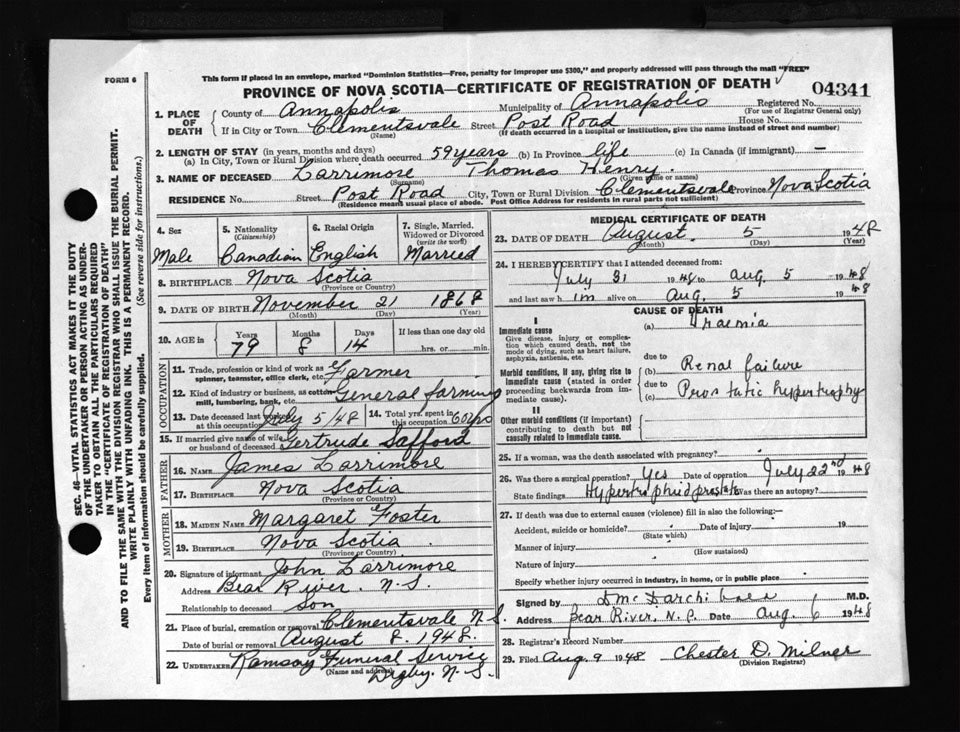 FORM 6
This form if placed in an envelope, marked "Dominion Statistics—Free, penalty for improper use $300," and properly addressed will pass through the mail "FREE"
PROVINCE OF NOVA SCOTIA—CERTIFICATE OF REGISTRATION OF DEATH
04341
1. PLACE OF DEATH
County of Annapolis Municipality of Annapolis Registered No.
(For use of Registrar General only)
If in City or Town Clementsvale Street Post Road House No.
(Name) (If death occurred in a hospital or institution, give the name instead of street and number)
2. LENGTH OF STAY (in years, months and days)
(a) In City, Town or Rural Division where death occurred 59 years (b) In Province life (c) In Canada (if immigrant) —
3. NAME OF DECEASED Larrimore Thomas Henry
(Surname) (Given name or names)
RESIDENCE No. Street Post Road City, Town or Rural Division Clementsvale Province Nova Scotia
(Residence means usual place of abode. Post Office Address for residents in rural parts not sufficient)
4. Sex Male
5. Nationality (Citizenship) Canadian
6. Racial Origin English
7. Single, Married, Widowed or Divorced (write the word) Married
8. BIRTHPLACE Nova Scotia
(Province or Country)
9. DATE OF BIRTH November 21 1868
(Month) (Day) (Year)
10. AGE in Years 79 Months 8 Days 14 If less than one day old hrs. or min.
OCCUPATION
11. Trade, profession or kind of work as spinner, teamster, office clerk, etc. Farmer
12. Kind of industry or business, as cotton mill, lumbering, bank, etc. General farming
13. Date deceased last worked at this occupation July 5/48 14. Total yrs. spent in this occupation 60 yrs
15. If married give name of wife or husband of deceased Gertrude Safford
FATHER
16. NAME James Larrimore
17. BIRTHPLACE Nova Scotia
MOTHER
18. MAIDEN NAME Margaret Foster
19. BIRTHPLACE Nova Scotia
(Province or Country)
20. Signature of informant John Larrimore
Address Bear River. N.S.
Relationship to deceased son
21. Place of burial, cremation or removal Clementsvale N.S.
Date of burial or removal August 8. 1948.
22. UNDERTAKER Ramsay Funeral Service
(Name and address) Digby. N.S.
MEDICAL CERTIFICATE OF DEATH
23. DATE OF DEATH August 5 1948
(Month) (Day) (Year)
24. I HEREBY CERTIFY that I attended deceased from:
July 31 1948 to Aug. 5 1948
and last saw him alive on Aug. 5 1948
CAUSE OF DEATH
I
Immediate cause
Give disease, injury or complication which caused death, not the mode of dying, such as heart failure, asphyxia, asthenia, etc.
(a) Uraemia
due to
Morbid conditions, if any, giving rise to immediate cause (stated in order proceeding backwards from immediate cause).
(b) Renal failure
due to
(c) Prostatic hypertrophy
II
Other morbid conditions (if important) contributing to death but not causally related to immediate cause.
25. If a woman, was the death associated with pregnancy?
26. Was there a surgical operation? Yes Date of operation July 22nd 1948
State findings Hypertrophied prostate Was there an autopsy?
27. If death was due to external causes (violence) fill in also the following:—
Accident, suicide or homicide? Date of injury 19
(State which)
Manner of injury
(How sustained)
Nature of injury
Specify whether injury occurred in industry, in home, or in public place
Signed by M.D.
Address Bear River, N.S. Date Aug. 6 1948
28. Registrar's Record Number
29. Filed Aug. 9 1948 Chester D. Milner
(Division Registrar)
SEC. 46—VITAL STATISTICS ACT MAKES IT THE DUTY
OF THE UNDERTAKER OR PERSON ACTING AS UNDER-
TAKER TO OBTAIN ALL THE PARTICULARS REQUIRED
IN THE "CERTIFICATE OF REGISTRATION OF DEATH"
AND TO FILE THE SAME WITH THE DIVISION REGISTRAR WHO SHALL ISSUE THE BURIAL PERMIT.
WRITE PLAINLY WITH UNFADING INK. THIS IS A PERMANENT RECORD.
Every item of information should be carefully supplied. (See reverse side for instructions.)